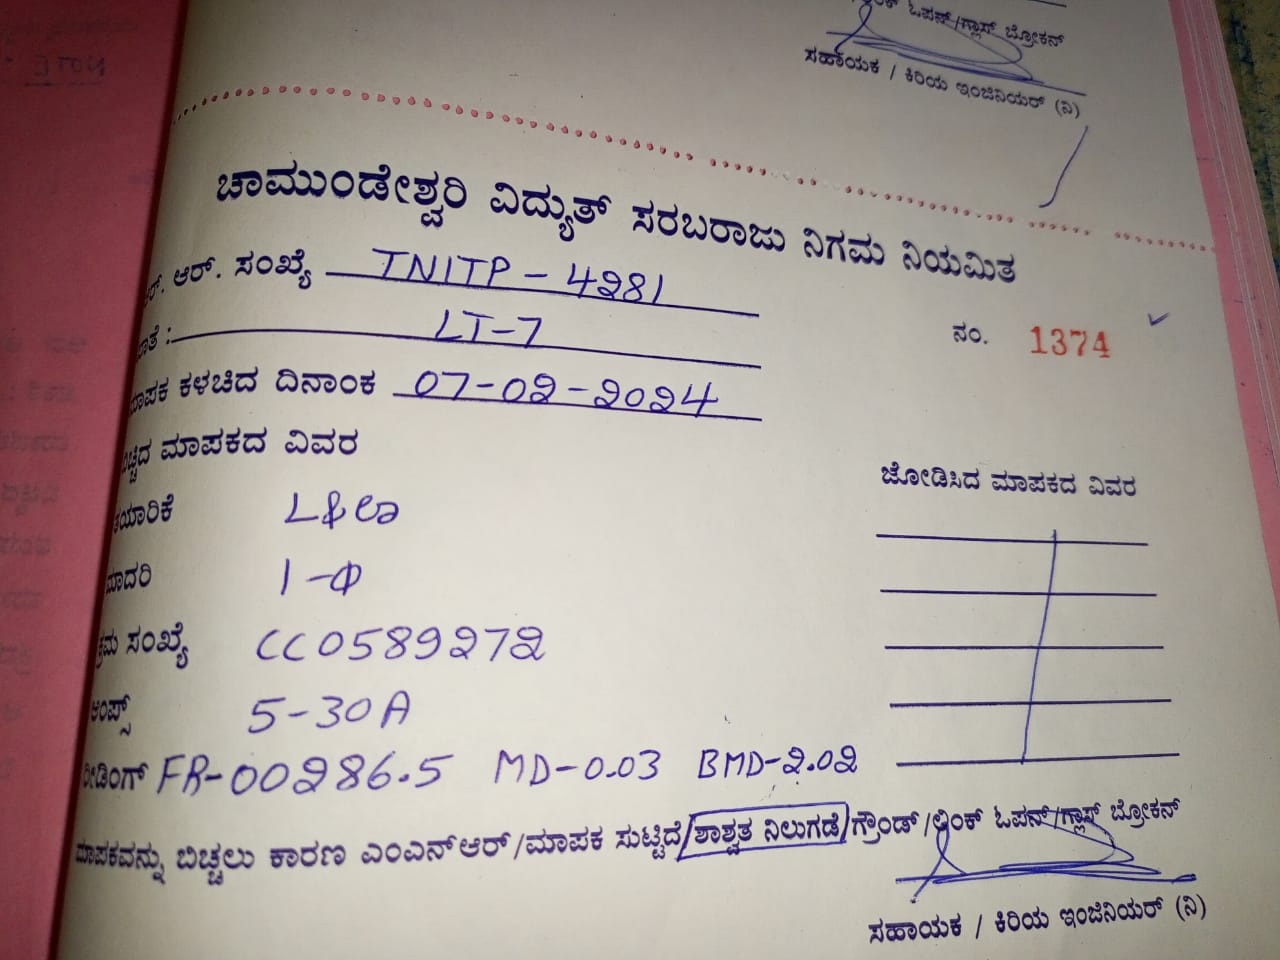 ಓಪನ್/ಗ್ಲಾಸ್ ಬ್ರೋಕನ್
ಸಹಾಯಕ / ಕಿರಿಯ ಇಂಜಿನಿಯರ್ (ನಿ)
ಚಾಮುಂಡೇಶ್ವರಿ ವಿದ್ಯುತ್ ಸರಬರಾಜು ನಿಗಮ ನಿಯಮಿತ
ಆರ್. ಸಂಖ್ಯೆ TNITP - 4281
LT-7
ನಂ. 1374
ಮಾಪಕ ಕಳಚಿದ ದಿನಾಂಕ 07-02-2024
ಬಿಚ್ಚಿದ ಮಾಪಕದ ವಿವರ
ಜೋಡಿಸಿದ ಮಾಪಕದ ವಿವರ
ತಯಾರಿಕೆ L&
ಮಾದರಿ 1-Φ
ಕ್ರಮ ಸಂಖ್ಯೆ CC0589272
ಆಂಪ್ಸ್ 5-30A
ರೀಡಿಂಗ್ FR-00286.5 MD-0.03 BMD-2.02
ಮಾಪಕವನ್ನು ಬಿಚ್ಚಲು ಕಾರಣ ಎಂಎನ್ಆರ್/ಮಾಪಕ ಸುಟ್ಟಿದೆ/ಶಾಶ್ವತ ನಿಲುಗಡೆ/ಗ್ರೌಂಡ್/ಲಿಂಕ್ ಓಪನ್/ಗ್ಲಾಸ್ ಬ್ರೋಕನ್
ಸಹಾಯಕ / ಕಿರಿಯ ಇಂಜಿನಿಯರ್ (ನಿ)